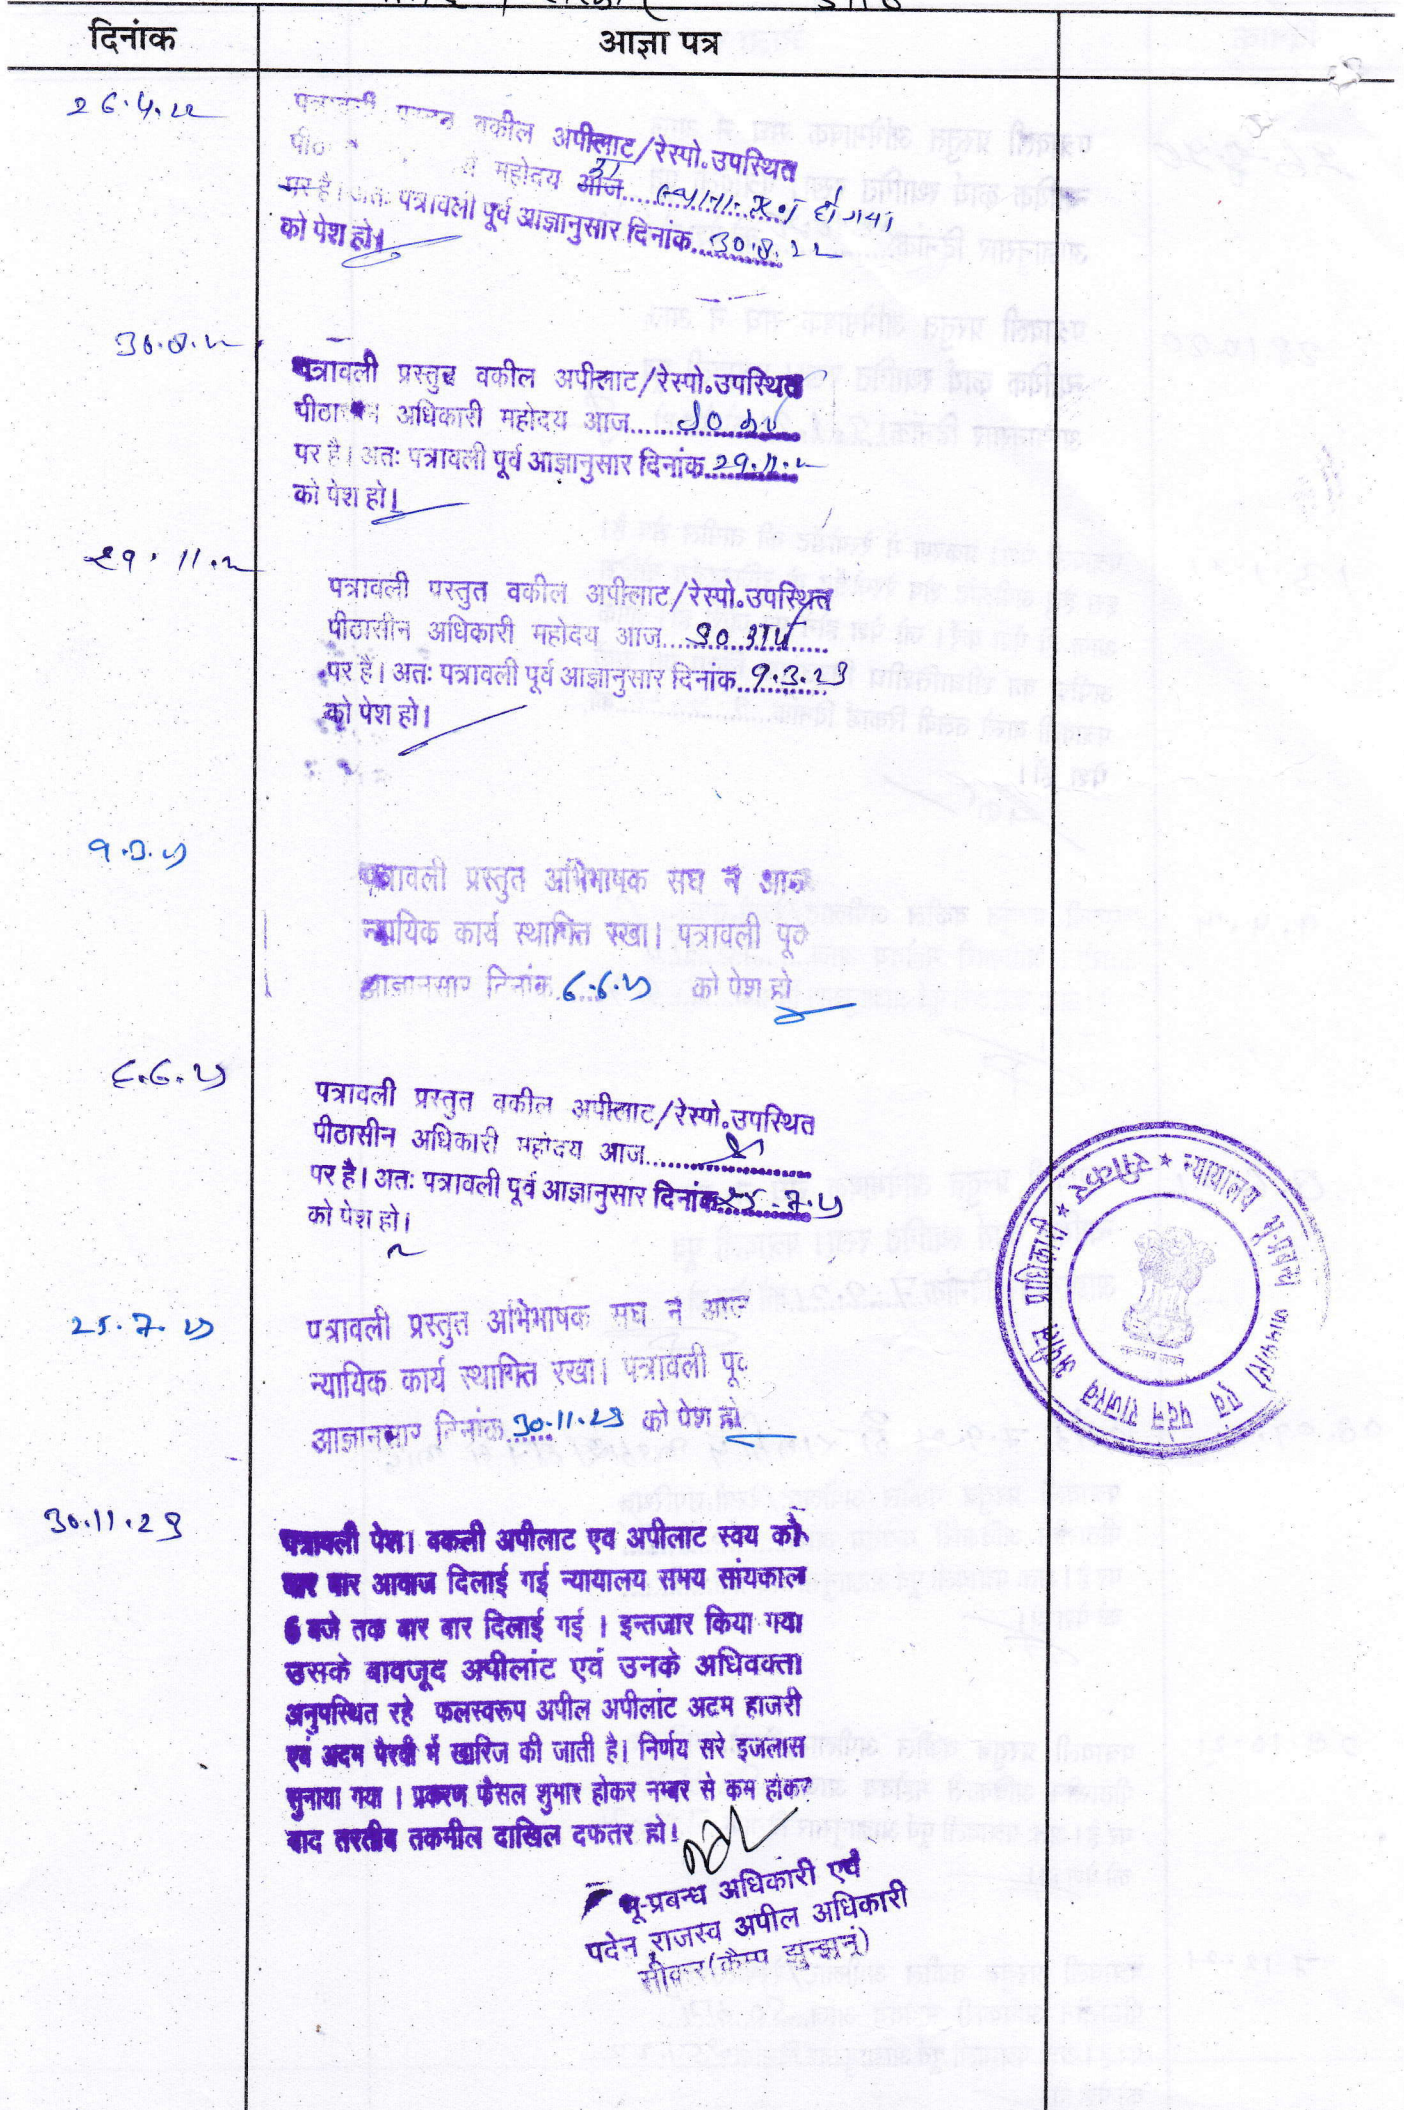 दिनांक
आज्ञा पत्र
26.4.22
पत्रावली प्रस्तुत वकील अपीलाट/रेस्पो.उपस्थित
महोदय आज
पर है। अतः पत्रावली पूर्व आज्ञानुसार दिनांक 30.8.22
को पेश हो।
30.8.22
पत्रावली प्रस्तुत वकील अपीलाट/रेस्पो.उपस्थित
पीठासीन अधिकारी महोदय आज
पर है। अतः पत्रावली पूर्व आज्ञानुसार दिनांक 29.11.22
को पेश हो।
29.11.22
पत्रावली प्रस्तुत वकील अपीलाट/रेस्पो.उपस्थित
पीठासीन अधिकारी महोदय आज
पर है। अतः पत्रावली पूर्व आज्ञानुसार दिनांक 9.3.23
को पेश हो।
9.3.23
पत्रावली प्रस्तुत अभिभाषक संघ ने आज
न्यायिक कार्य स्थागित रखा। पत्रावली पूर्व
आज्ञानुसार दिनांक 6.6.23 को पेश हो
6.6.23
पत्रावली प्रस्तुत वकील अपीलाट/रेस्पो.उपस्थित
पीठासीन अधिकारी महोदय आज
पर है। अतः पत्रावली पूर्व आज्ञानुसार दिनांक 25.7.23
को पेश हो।
25.7.23
पत्रावली प्रस्तुत अभिभाषक संघ ने आज
न्यायिक कार्य स्थागित रखा। पत्रावली पूर्व
आज्ञानुसार दिनांक 30.11.23 को पेश हो
न्यायालय भू-प्रबन्ध अधिकारी एवं पदेन राजस्व अपील प्राधिकारी * सीकर *
30.11.23
पत्रावली पेश। वकली अपीलाट एव अपीलाट स्वय को
बार बार आवाज दिलाई गई न्यायालय समय सांयकाल
6 बजे तक बार बार दिलाई गई । इन्तजार किया गया
उसके बावजूद अपीलांट एवं उनके अधिवक्ता
अनुपस्थित रहे फलस्वरूप अपील अपीलांट अदम हाजरी
एवं अदम पैरवी में खारिज की जाती है। निर्णय सरे इजलास
सुनाया गया । प्रकरण फैसल शुमार होकर नम्बर से कम होकर
बाद तरतीब तकमील दाखिल दफतर हो।
भू-प्रबन्ध अधिकारी एवं
पदेन राजस्व अपील अधिकारी
सीकर (कैम्प झुन्झुनूं)